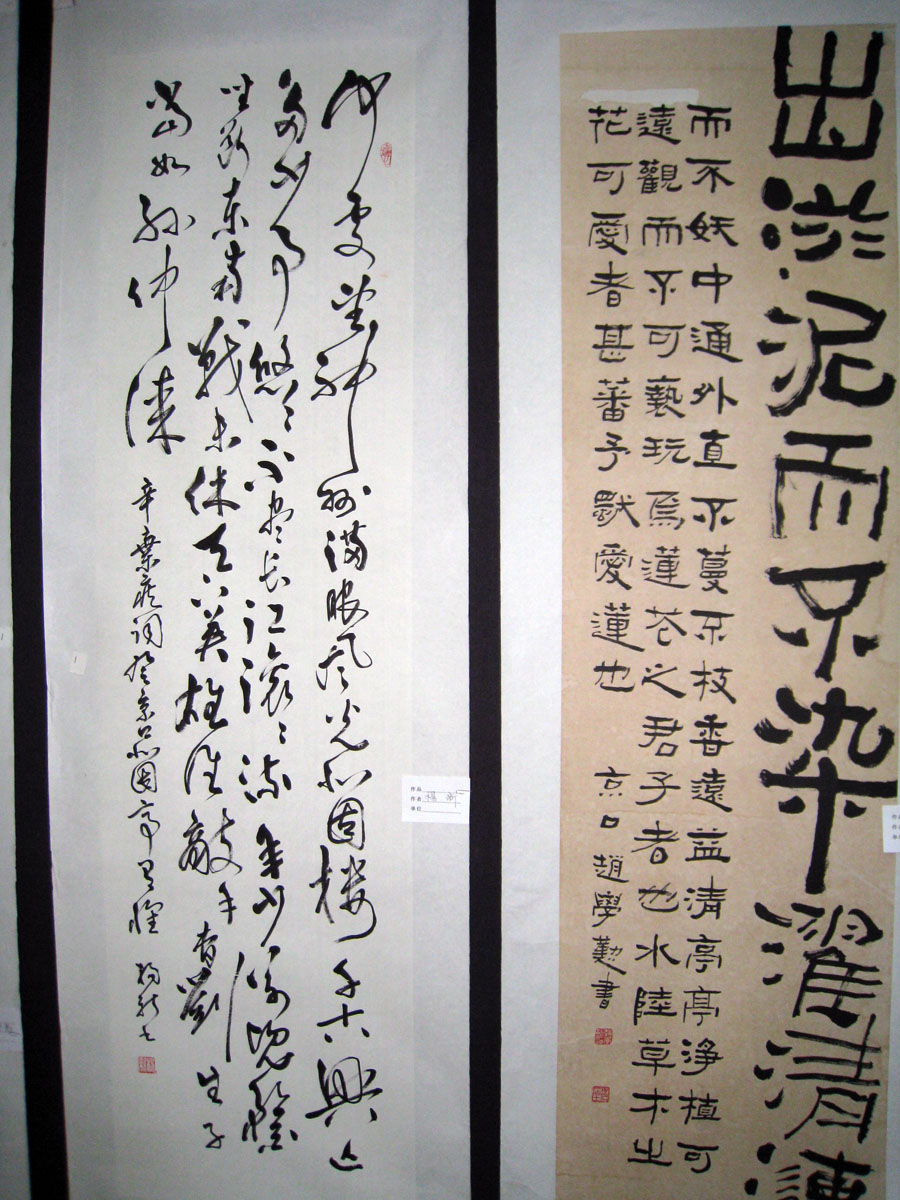 出淤泥而不染濯清漣
而不妖中通外直不蔓不枝香遠益清亭亭淨植可
遠觀而不可褻玩焉蓮花之君子者也水陸草木之
花可愛者甚蕃予獨愛蓮也 京口趙學勤書
何處望神州滿眼風光北固樓千古興亡
多少事悠悠不盡長江滾滾流年少萬兜鍪
坐斷東南戰未休天下英雄誰敵手曹劉生子
當如孫仲謀 辛棄疾詞登京口北固亭有懷
作品
作者
单位